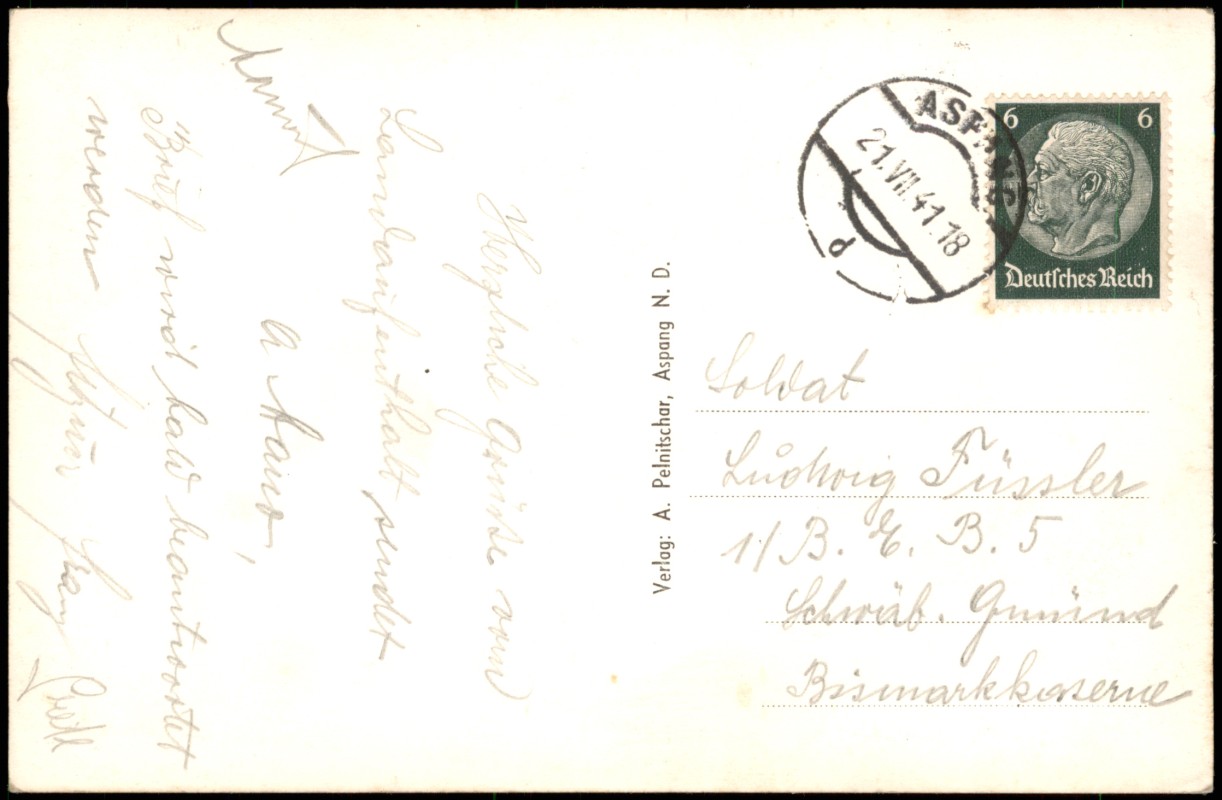 Herzliche Grüße vom
Landaufenthalt sendet
Brief wird bald beantwortet
werden
Verlag: A. Pelnitschar, Aspang N. D.
ASPANG
21.VII.41.18
6 6
Deutsches Reich
Soldat
Ludwig Füssler
1/ B. E. B. 5
Schwäb. Gmünd
Bismarkkaserne